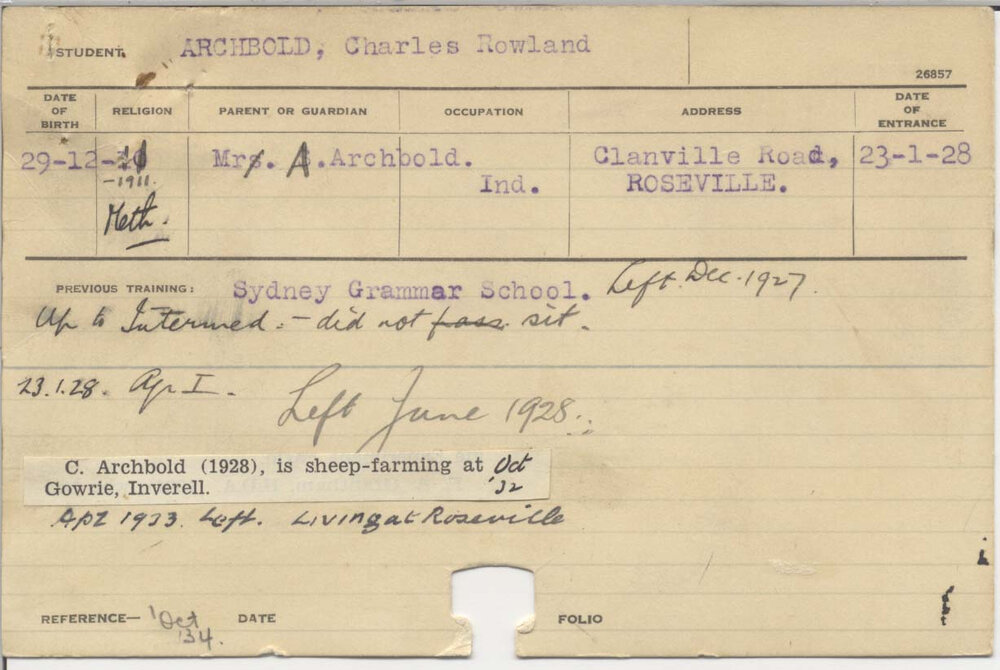 STUDENT. ARCHBOLD, Charles Rowland
26857
DATE OF BIRTH RELIGION PARENT OR GUARDIAN OCCUPATION ADDRESS DATE OF ENTRANCE
29-12- Mrs. A. Archbold. Clanville Road, 23-1-28
-1911. Ind. ROSEVILLE.
Meth.
PREVIOUS TRAINING: Sydney Grammar School. Left. Dec. 1927.
Up to Intermed. - did not pass sit.
23.1.28. Ag. I. Left June 1928.
C. Archbold (1928), is sheep-farming at Oct
Gowrie, Inverell. '32
Apl 1933 Left. Living at Roseville
REFERENCE— 'Oct DATE FOLIO
'34.